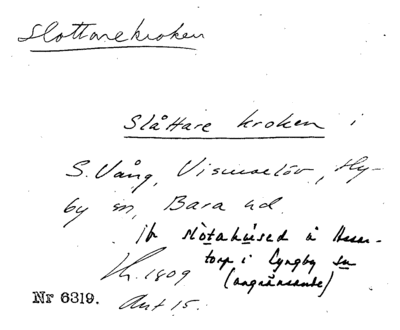 Slottarekroken
Slåttare kroken i
S. Vång, Vismarlöv, Hy-
by sn, Bara hd.
jfr slòtahúsed å Assar-
torp i Lyngby sn
(angränsande)
1809
Akt 15.
Nr 6319.